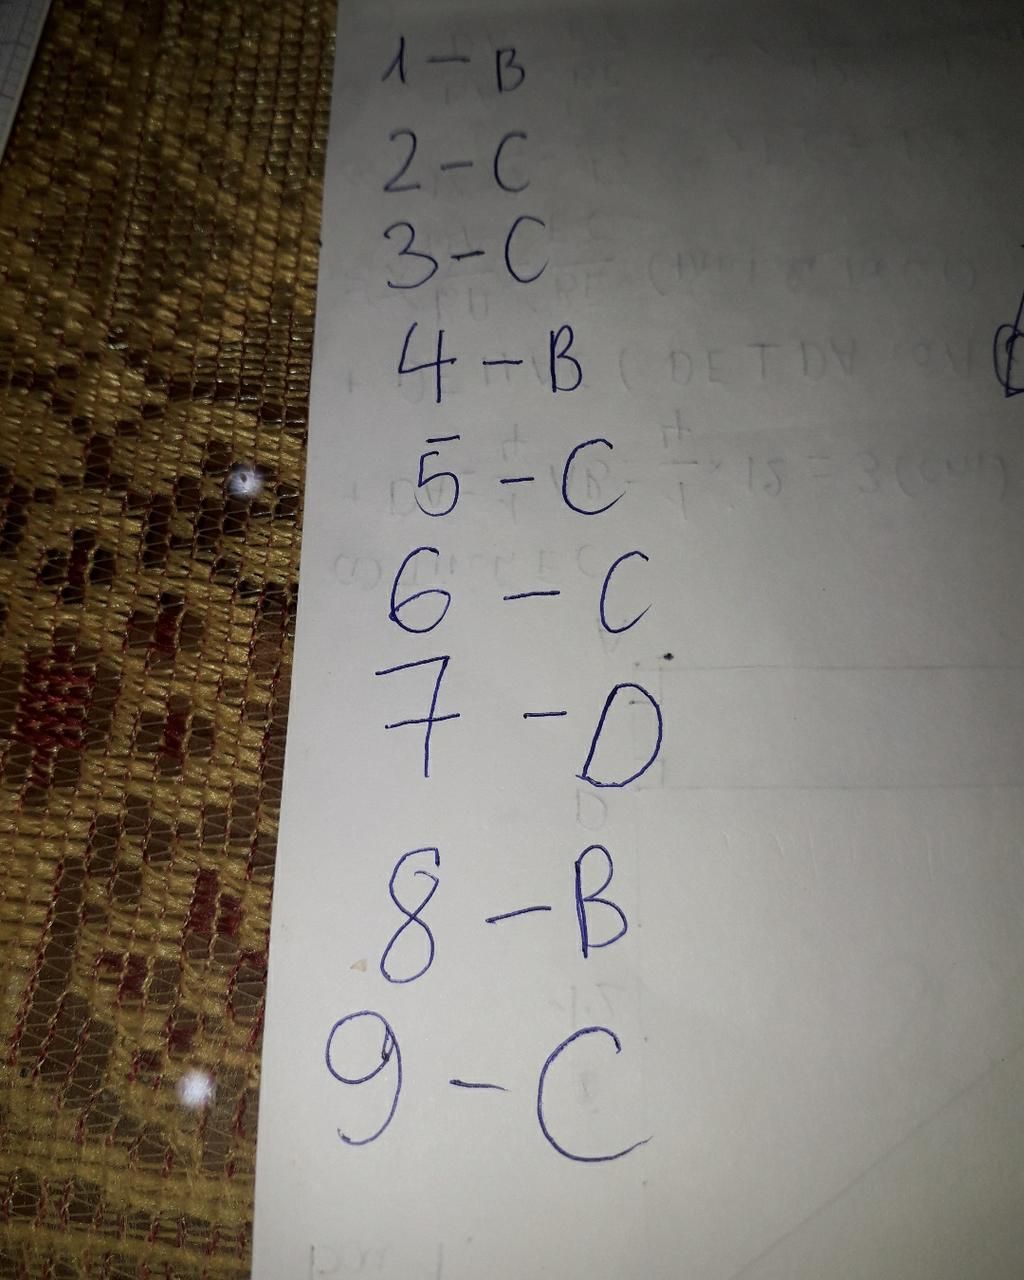 1 - B
2 - C
3 - C
4 - B
5 - C
6 - C
7 - D
8 - B
9 - C